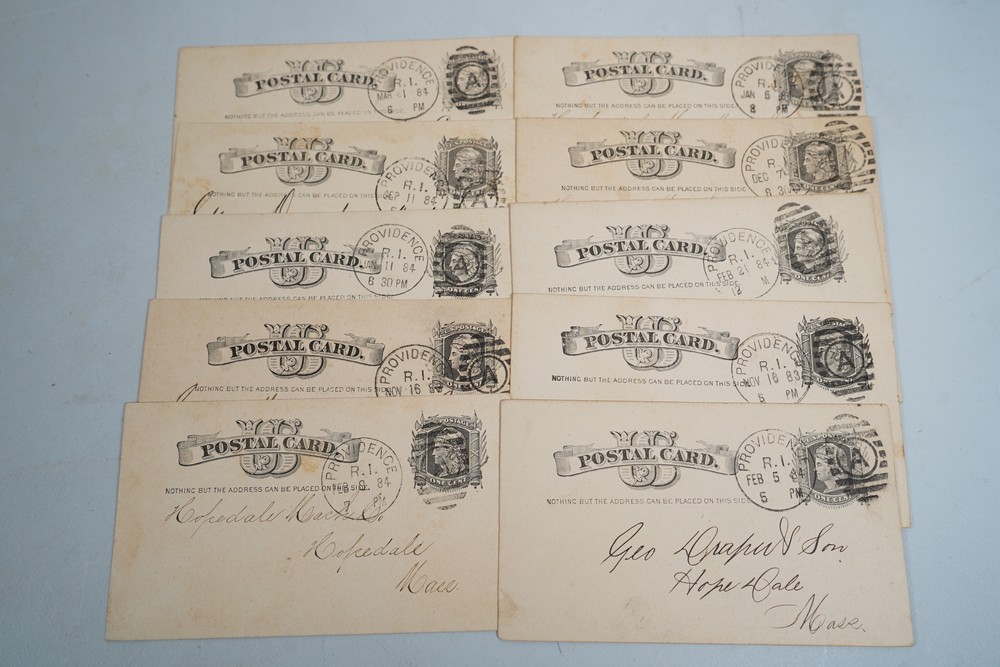 POSTAL CARD.
PROVIDENCE
R.I.
MAR 21 84
6 PM
A
NOTHING BUT THE ADDRESS CAN BE PLACED ON THIS SIDE.
POSTAL CARD.
PROVIDENCE
R.I.
JAN 5
8 PM
A
NOTHING BUT THE ADDRESS CAN BE PLACED ON THIS SIDE
POSTAL CARD.
PROVIDENCE
R.I.
SEP 11 84
A
NOTHING BUT THE ADDRESS CAN BE PLACED ON THIS SIDE.
POSTAL CARD.
PROVIDENCE
DEC 7
6 30
ONE CENT
NOTHING BUT THE ADDRESS CAN BE PLACED ON THIS SIDE
POSTAL CARD.
PROVIDENCE
R.I.
JAN 11 84
6 30 PM
A
ONE CENT
NOTHING BUT THE ADDRESS CAN BE PLACED ON THIS SIDE.
POSTAL CARD.
PROVIDENCE
R.I.
FEB 21 84
12 M
ONE CENT
NOTHING BUT THE ADDRESS CAN BE PLACED ON THIS SIDE.
POSTAL CARD.
PROVIDENCE
R.I.
NOV 16 83
U.S. POSTAGE
A
ONE CENT
NOTHING BUT THE ADDRESS CAN BE PLACED ON THIS SIDE.
POSTAL CARD.
PROVIDENCE
R.I.
NOV 16 83
5 PM
A
NOTHING BUT THE ADDRESS CAN BE PLACED ON THIS SIDE.
POSTAL CARD.
PROVIDENCE
R.I.
FEB 84
POSTAGE
ONE CENT
NOTHING BUT THE ADDRESS CAN BE PLACED ON THIS SIDE.
Hopedale Mach Co
Hopedale
Mass.
POSTAL CARD.
PROVIDENCE
R.I.
FEB 5 84
5 PM
A
ONE CENT
NOTHING BUT THE ADDRESS CAN BE PLACED ON THIS SIDE.
Geo Draper & Son
Hope Dale
Mass.